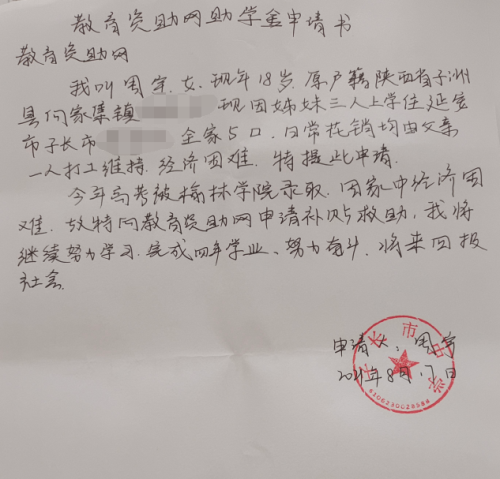 教育资助网助学金申请书
教育资助网
我叫周宇,女,现年18岁,原户籍陕西省子洲
县何家集镇 现因姊妹三人上学住延安
市子长市 全家5口,日常花销均由父亲
一人打工维持,经济困难,特提此申请.
今年高考被榆林学院录取,因家中经济困
难,故特向教育资助网申请补贴救助,我将
继续努力学习,完成四年学业、努力奋斗,将来回报
社会.
申请人:周宇
2021年8月17日
子长市中学